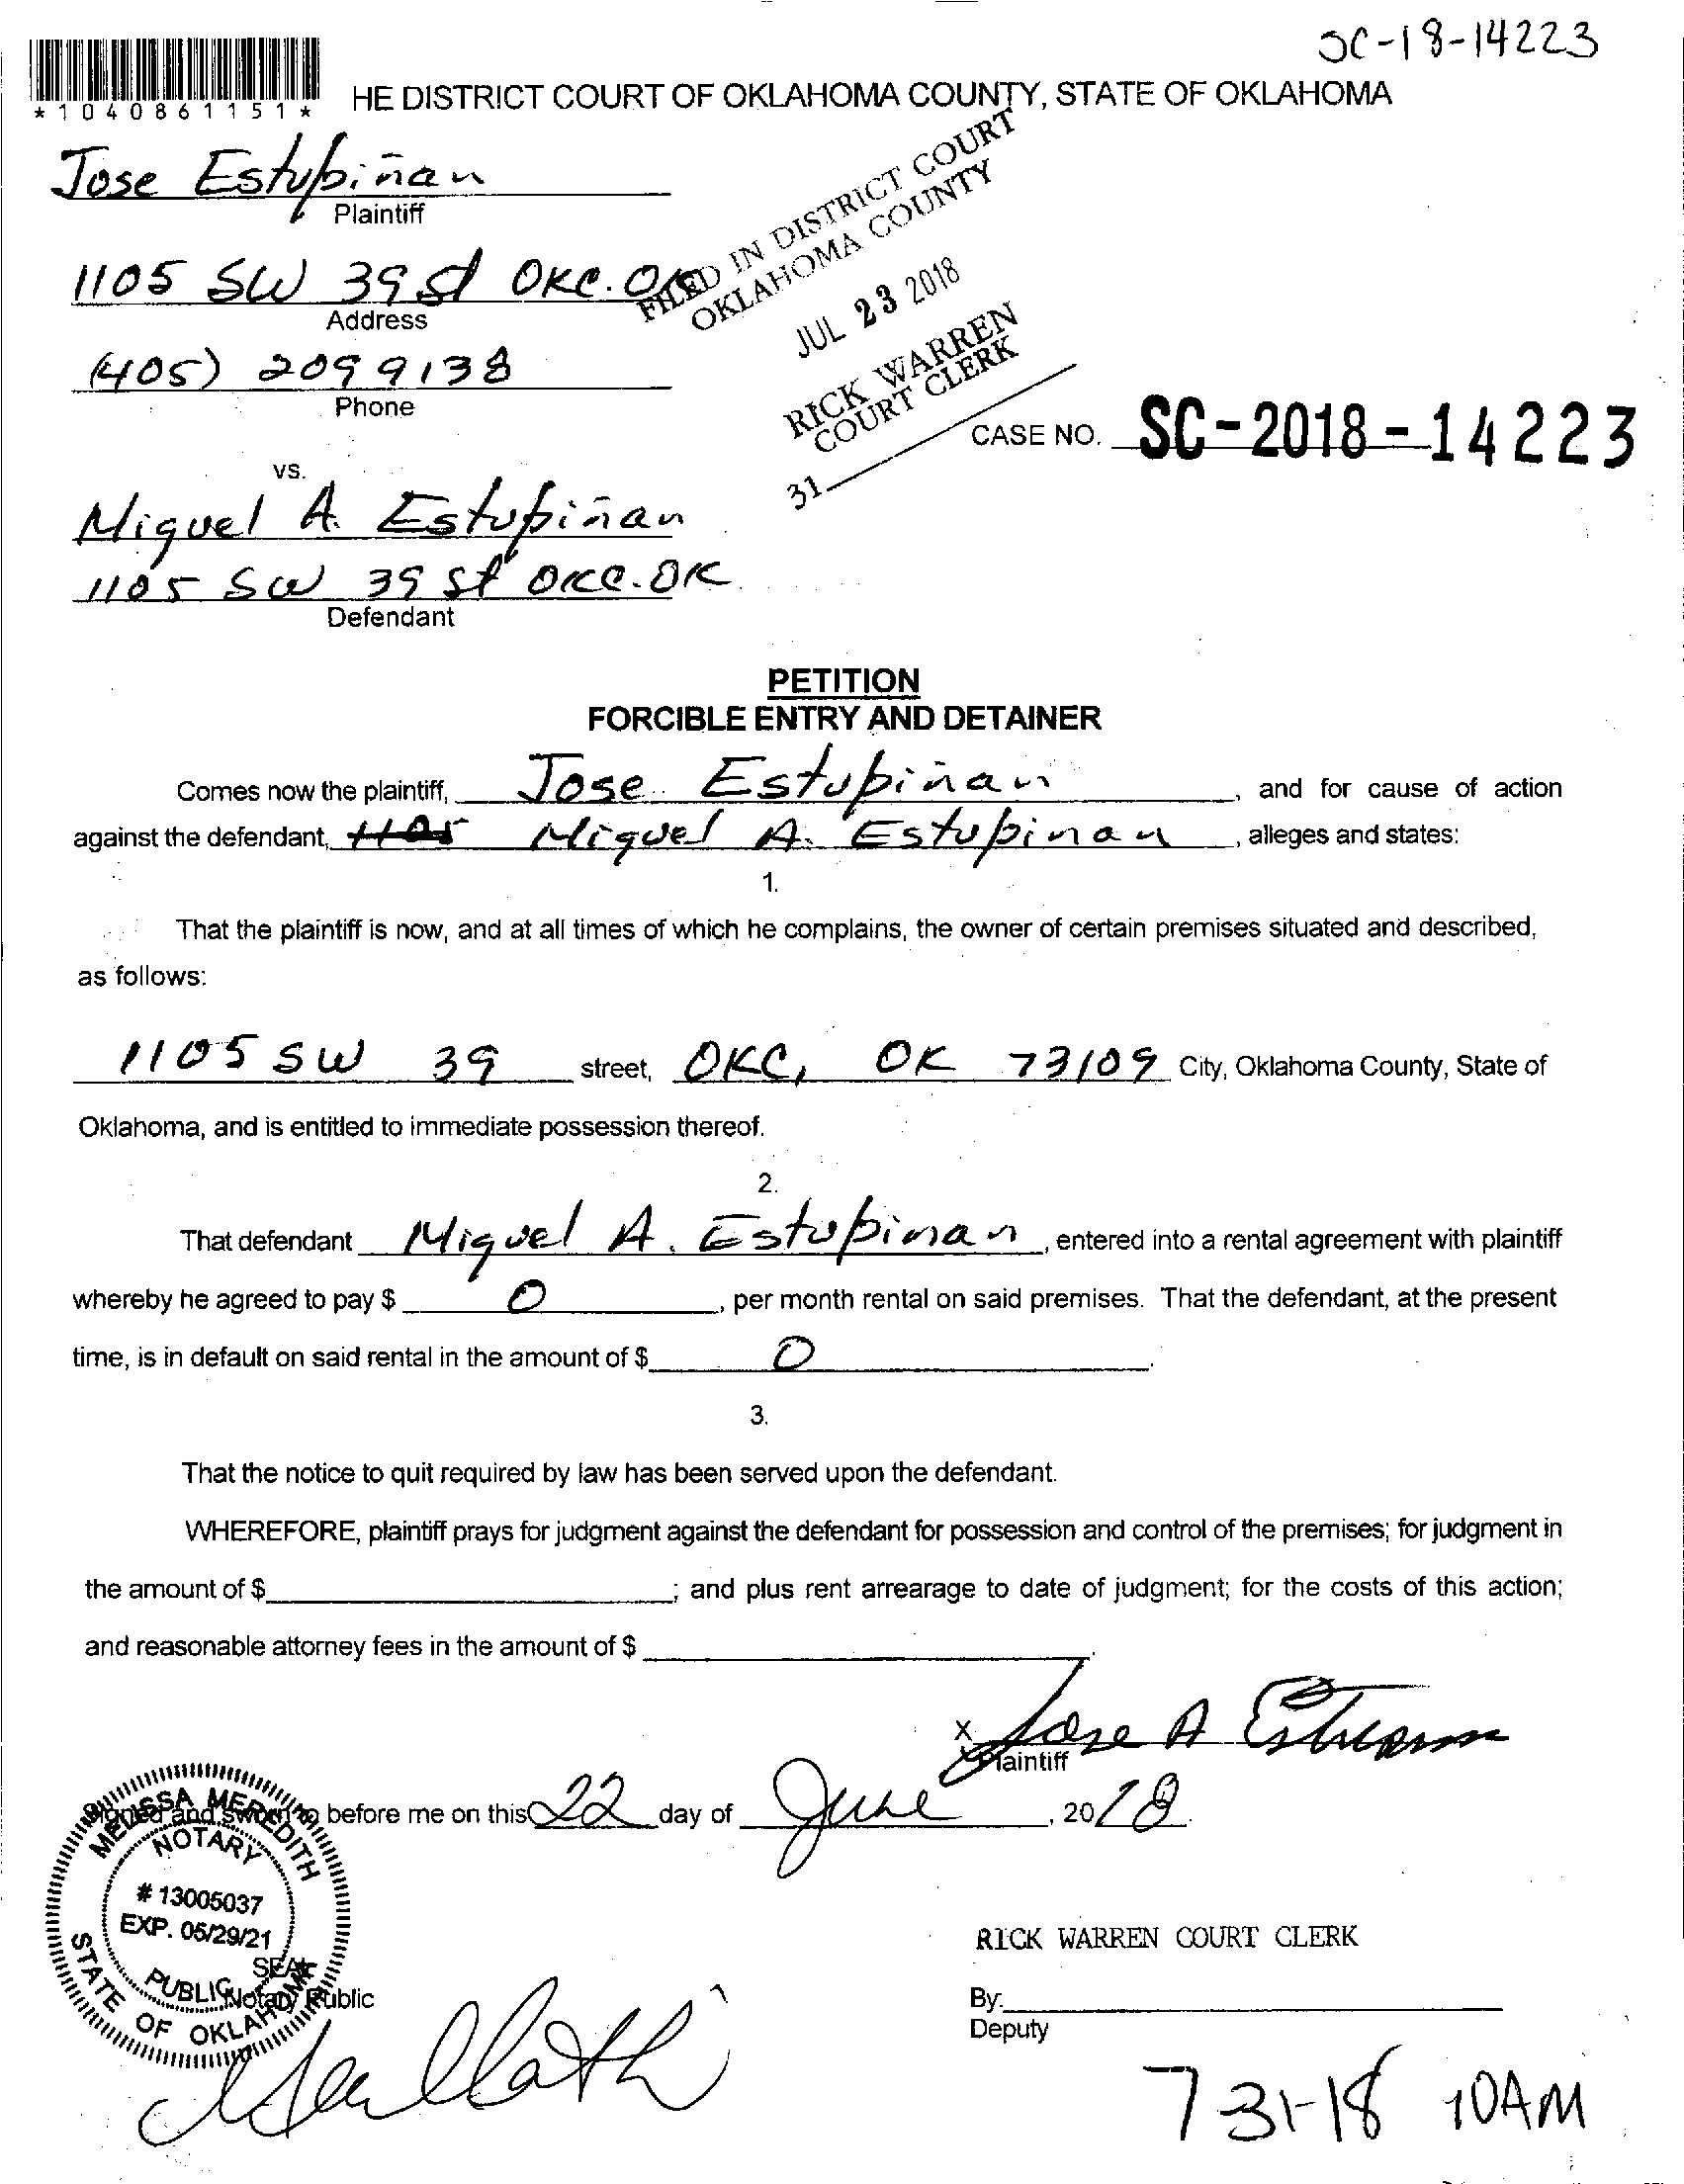 SC-18-14223
*1040861151*
HE DISTRICT COURT OF OKLAHOMA COUNTY, STATE OF OKLAHOMA
Jose Estupiñan
Plaintiff
1105 SW 39 St OKC. OK
Address
(405) 209 9138
Phone
FILED IN DISTRICT COURT
OKLAHOMA COUNTY
JUL 23 2018
RICK WARREN
COURT CLERK
31
CASE NO. SC-2018-14223
vs.
Miguel A. Estupiñan
1105 SW 39 St OKC. OK
Defendant
PETITION
FORCIBLE ENTRY AND DETAINER
Comes now the plaintiff, Jose Estupiñan, and for cause of action
against the defendant, 1105 Miguel A. Estupinan, alleges and states:
1.
That the plaintiff is now, and at all times of which he complains, the owner of certain premises situated and described,
as follows:
1105 SW 39 street, OKC, OK 73109 City, Oklahoma County, State of
Oklahoma, and is entitled to immediate possession thereof.
2.
That defendant Miguel A. Estupinan, entered into a rental agreement with plaintiff
whereby he agreed to pay $ 0, per month rental on said premises. That the defendant, at the present
time, is in default on said rental in the amount of $ 0.
3.
That the notice to quit required by law has been served upon the defendant.
WHEREFORE, plaintiff prays for judgment against the defendant for possession and control of the premises; for judgment in
the amount of $ ; and plus rent arrearage to date of judgment; for the costs of this action;
and reasonable attorney fees in the amount of $ .
x Jose A
Plaintiff
Signed and sworn to before me on this 22 day of June, 2018.
MELISSA MEREDITH
NOTARY
# 13005037
EXP. 05/29/21
PUBLIC
STATE OF OKLAHOMA
SEAL
Notary Public
RICK WARREN COURT CLERK
By:
Deputy
7 31-18 10AM